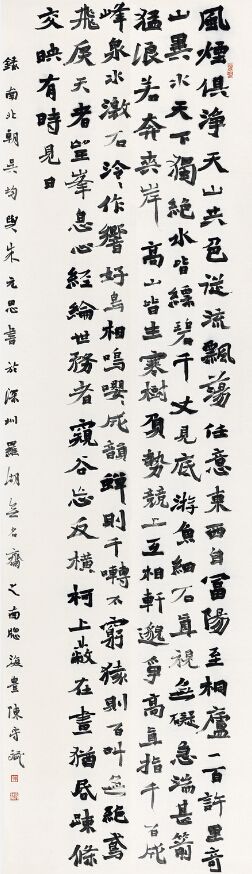 風煙俱淨天山共色從流飄蕩任意東西自富陽至桐廬一百許里奇
山異水天下獨絕水皆縹碧千丈見底游魚細石直視無礙急湍甚箭
猛浪若奔夾岸高山皆生寒樹負勢競上互相軒邈爭高直指千百成
峰泉水激石泠々作響好鳥相鳴嚶々成韻蟬則千囀不窮猿則百叫無絕鳶
飛戾天者望峯息心經綸世務者窺谷忘反橫柯上蔽在晝猶昏疎條
交映有時見日
錄南北朝吳均與朱元思書於深圳羅湖無名齋之南牕海豊陳守斌